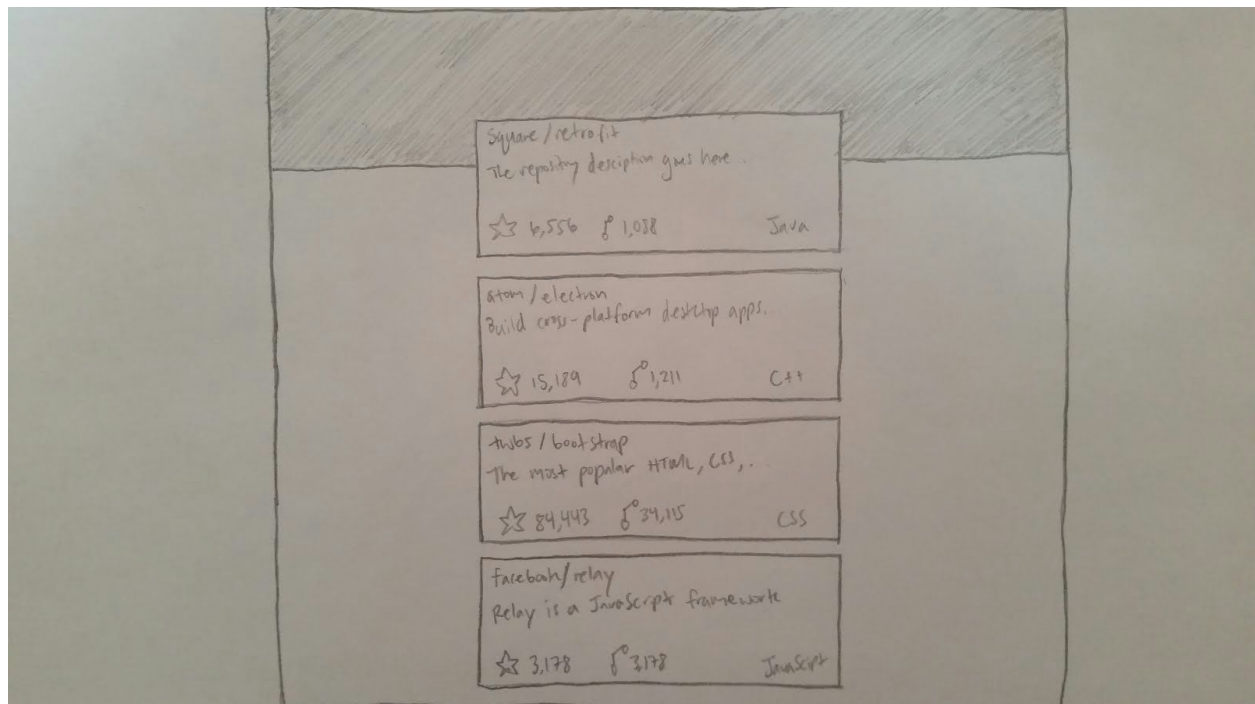 Square/retrofit
The repository desciption goes here.
6,556 1,038 Java
atom/electron
Build cross-platform desktop apps.
15,189 1,211 C++
twbs/bootstrap
The most popular HTML, CSS, ..
84,443 34,115 CSS
facebook/relay
Relay is a JavaScript framework
3,178 3,178 JavaScript